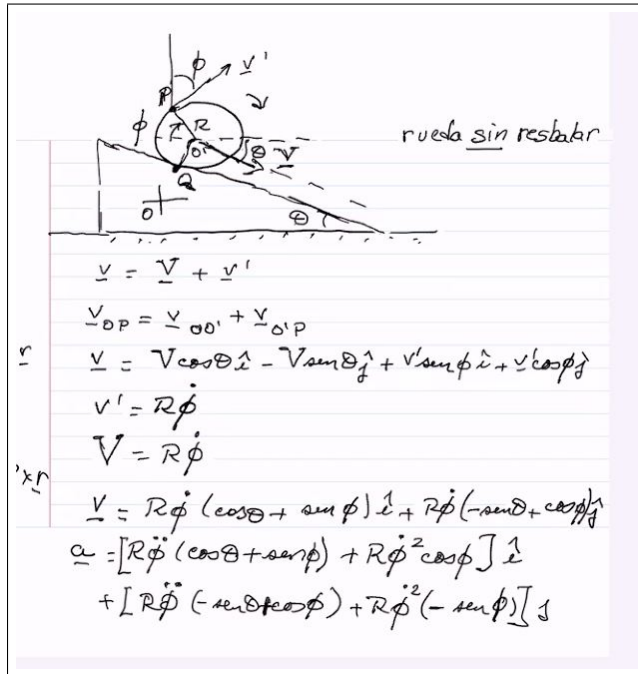 ϕ v'
P
ϕ R rueda sin resbalar
O' θ V
Q
O θ
v = V + v'
v_OP = v_OO' + v_O'P
r v = V cosθ î - V senθ ĵ + v' sen ϕ î + v' cosϕ ĵ
v' = Rϕ̇
V = Rϕ̇
'×r
v = Rϕ̇ (cosθ + sen ϕ) î + Rϕ̇ (-senθ + cosϕ) ĵ
a = [Rϕ̈ (cosθ + senϕ) + Rϕ̇² cosϕ] î
+ [Rϕ̈ (-senθ + cosϕ) + Rϕ̇² (- sen ϕ)] j